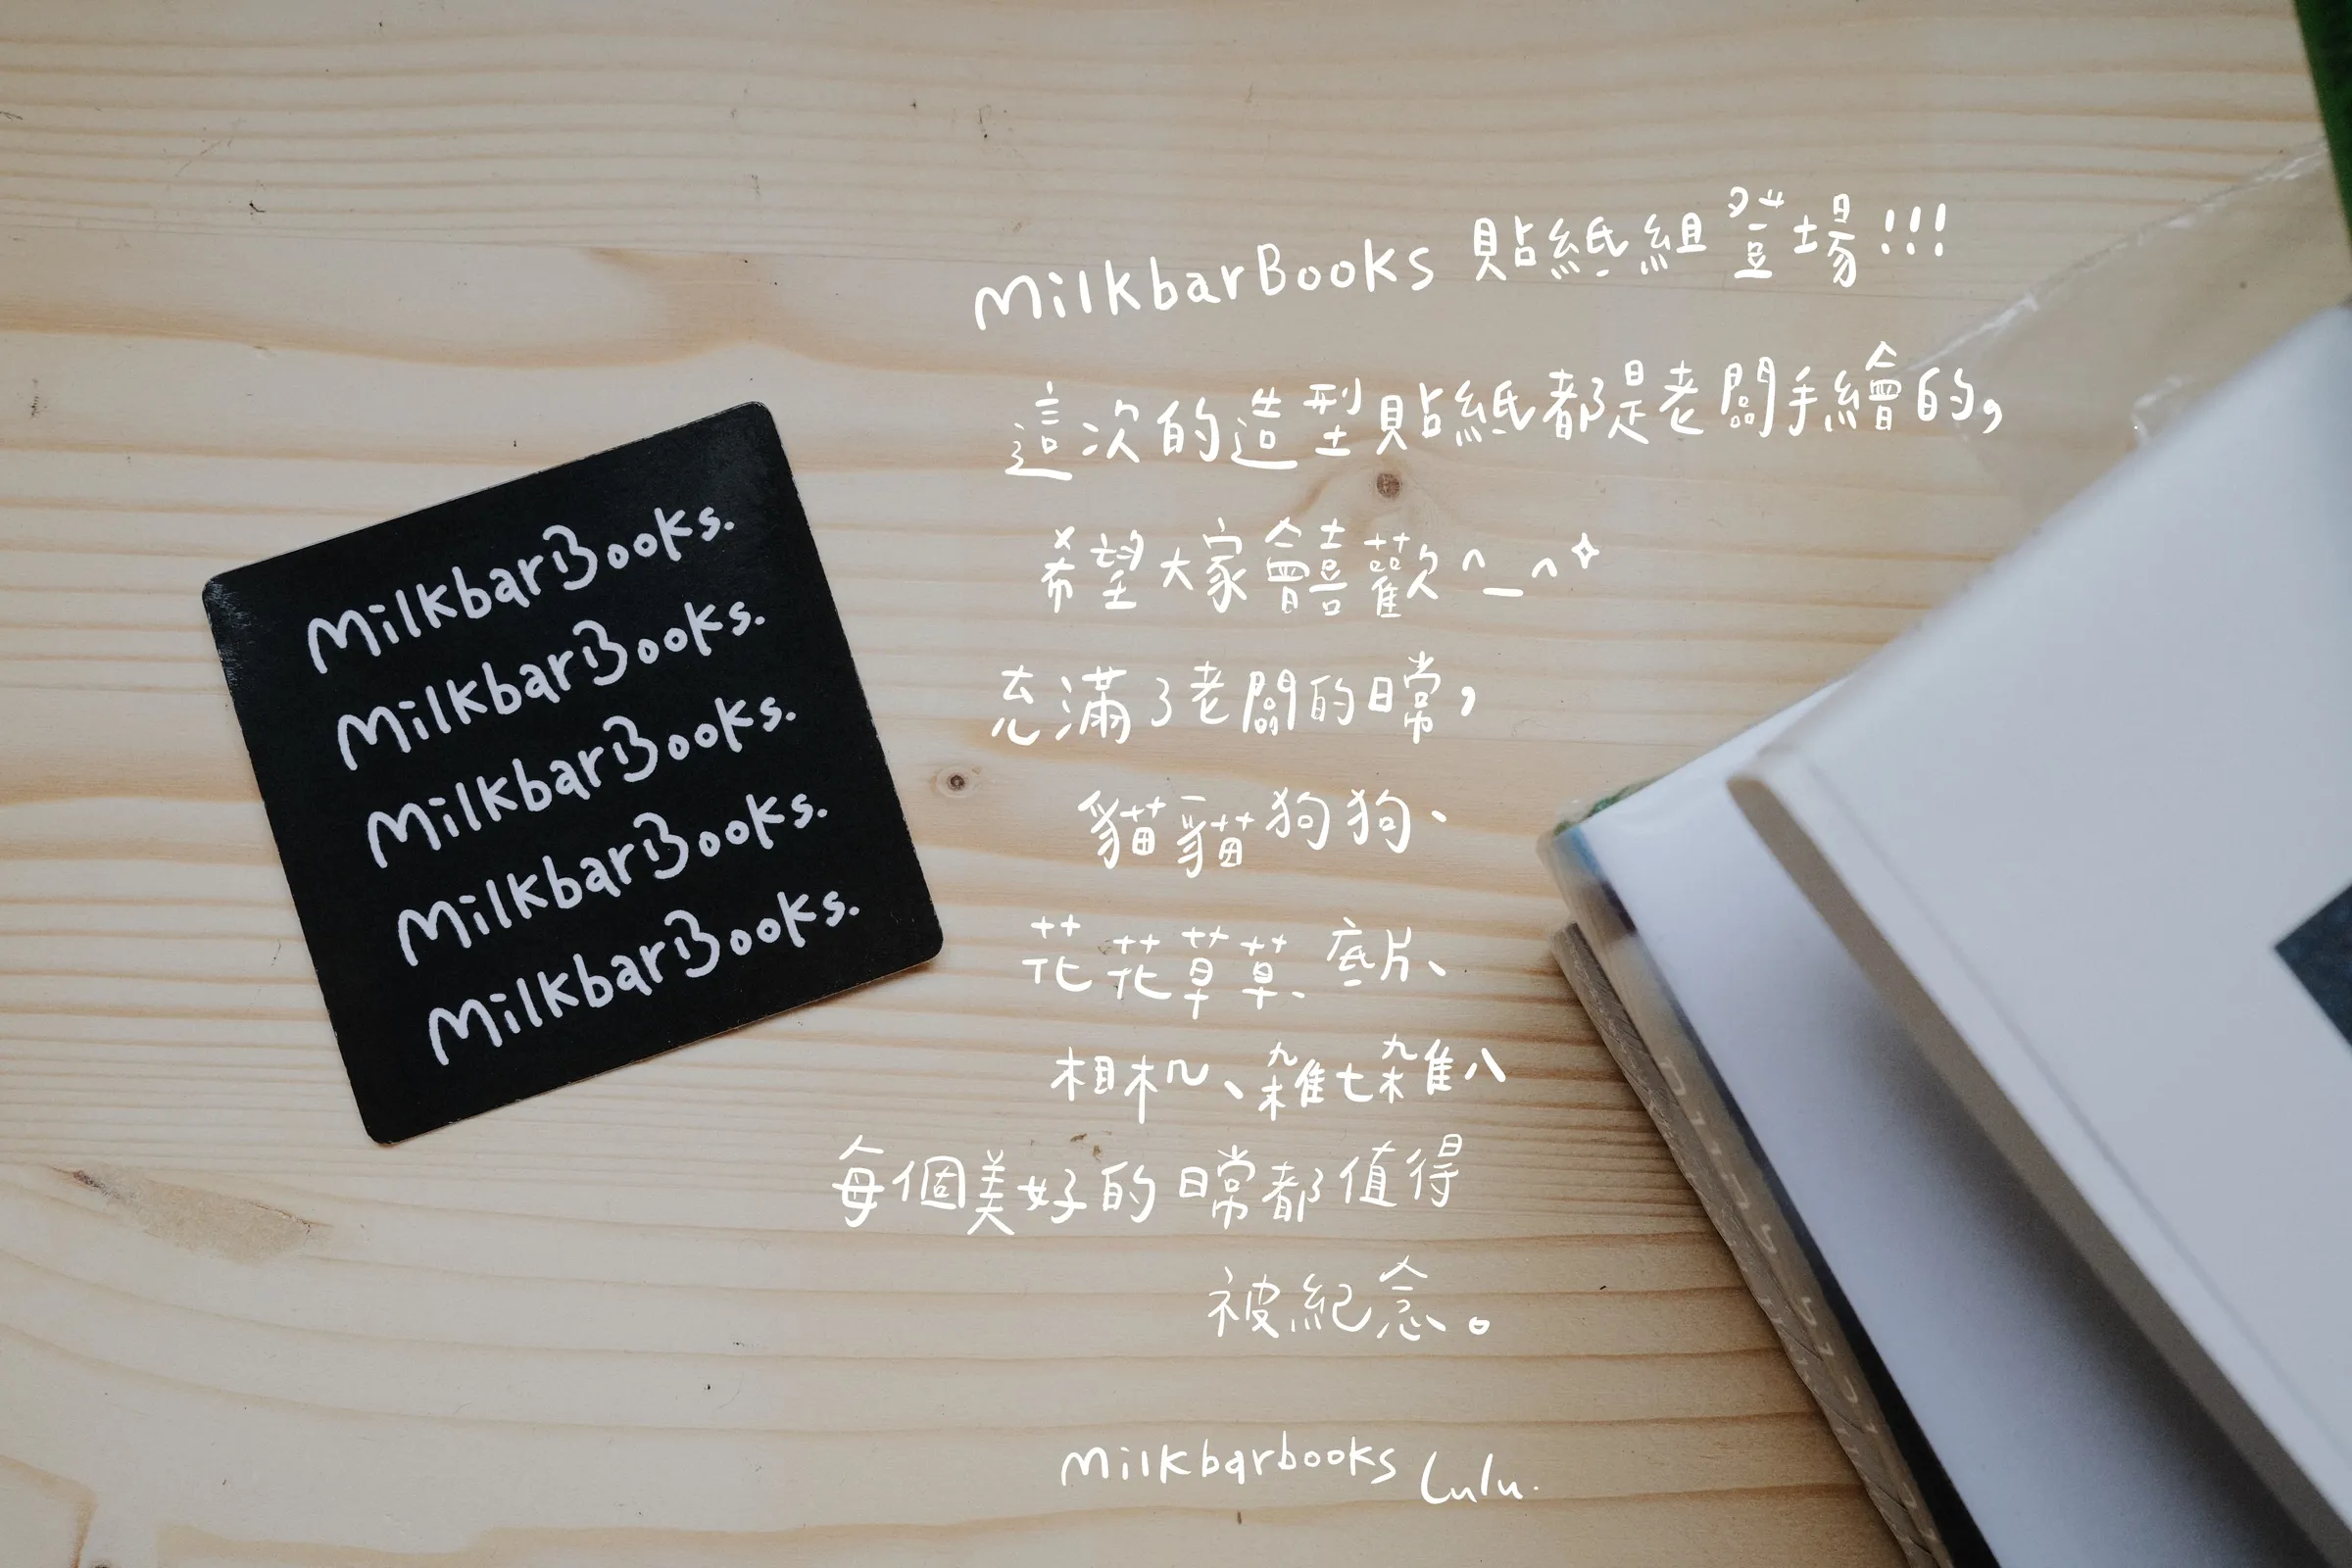 MilkbarBooks.
MilkbarBooks.
MilkbarBooks.
MilkbarBooks.
MilkbarBooks.
MilkbarBooks 貼紙組登場!!!
這次的造型貼紙都是老闆手繪的,
希望大家會喜歡^_^✦
充滿了老闆的日常,
貓貓狗狗、
花花草草、底片、
相机、雜七雜八
每個美好的日常都值得
被紀念。
Milkbarbooks Lulu.